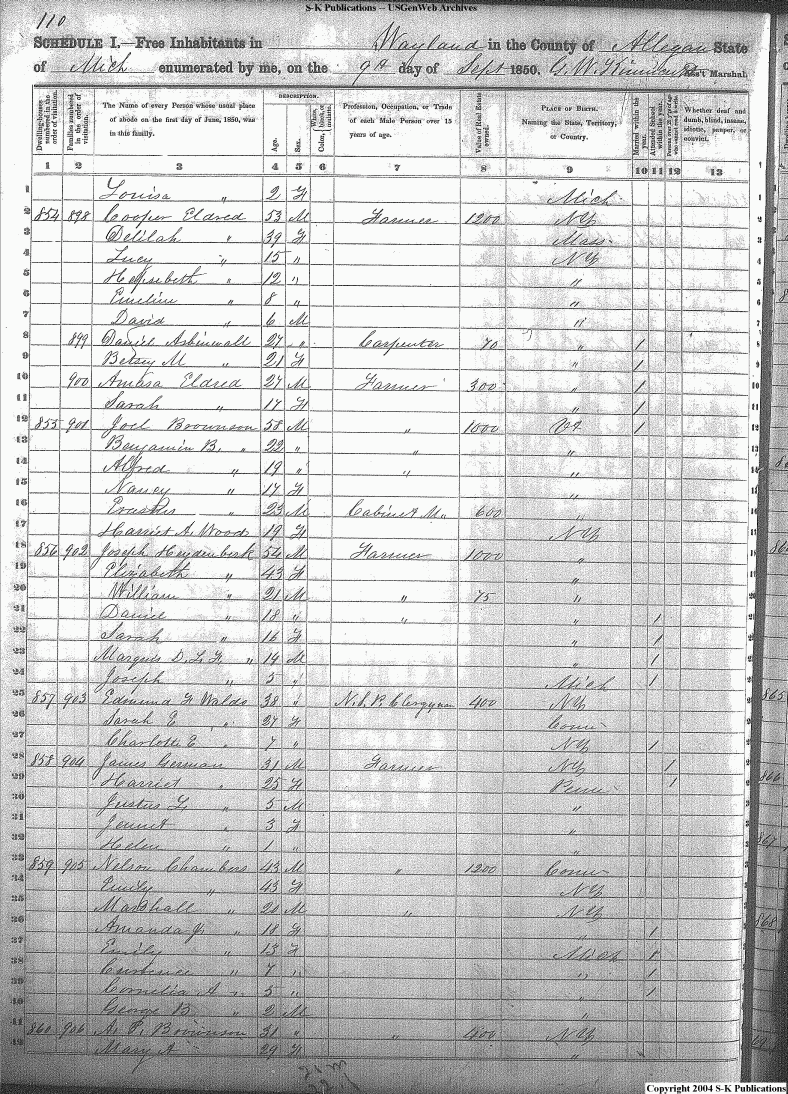 S-K Publications -- USGenWeb Archives
110
SCHEDULE I.—Free Inhabitants in Wayland in the County of Allegan State
of Mich enumerated by me, on the 9th day of Sept 1850. G. W. Ass't Marshal.
Dwelling-houses numbered in the order of visitation. Families numbered in the order of visitation. The Name of every Person whose usual place of abode on the first day of June, 1850, was in this family. DESCRIPTION. Age. Sex. Color, White, black, or mulatto. Profession, Occupation, or Trade of each Male Person over 15 years of age. Value of Real Estate owned. PLACE OF BIRTH. Naming the State, Territory, or Country. Married within the year. Attended School within the year. Persons over 20 y'rs of age who cannot read & write. Whether deaf and dumb, blind, insane, idiotic, pauper, or convict.
1 2 3 4 5 6 7 8 9 10 11 12 13
1 Louisa " 2 F Mich 1
2 854 898 Cooper Eldred 53 M Farmer 1200 NY 2
3 Delilah " 39 F Mass 3
4 Lucy " 15 " NY 4
5 Hepsibeth " 12 " " 5
6 Emeline " 8 " " 6
7 David " 6 M " 7
8 899 Daniel Asbinwall 27 " Carpenter 70 " 1 8
9 Betsey M " 21 F " 1 9
10 900 Amasa Eldred 27 M Farmer 300 " 1 10
11 Sarah " 17 F " 1 11
12 855 901 Joel Brownson 58 M " 1000 Vt 1 12
13 Benjamin B. " 22 " " " 13
14 Alfred " 19 " " " 14
15 Nancy " 17 F " 15
16 Erastus " 23 M Cabinet M. 600 " 16
17 Harriet A. Woods 19 F NY 17
18 856 902 Joseph Heydenberk 54 M Farmer 1000 " 18
19 Elizabeth " 43 F " 19
20 William " 21 M " 75 " 20
21 Daniel " 18 " " " 1 21
22 Sarah " 16 F " 1 22
23 Marques D. L. F. " 14 M " 1 23
24 Joseph " 5 " Mich 1 24
25 857 903 Edmund F Waldo 38 " N.S.P. Clergyman 400 NY 25
26 Sarah E " 27 F Conn 26
27 Charlotte E " 7 " NY 1 27
28 858 904 James German 31 M Farmer NY 1 28
29 Harriet " 25 F Penn 1 29
30 Justus L " 5 M " 30
31 Jannet " 3 F " 31
32 Helen " 1 " " 32
33 859 905 Nelson Chambers 43 M " 1200 Conn 33
34 Emily " 43 F NY 34
35 Marshall " 20 M " NY 35
36 Amanda J " 18 F " 1 36
37 Emily " 13 F Mich 1 37
38 " 7 " " 1 38
39 Cornelia A " 5 " " 1 39
40 George B " 2 M " 40
41 860 906 A. P. Brownson 31 " " 400 NY 41
42 Mary A 29 F " 42
Copyright 2004 S-K Publications